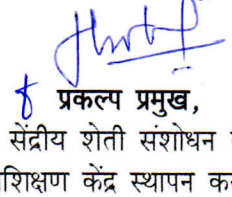 प्रकल्प प्रमुख,
सेंद्रीय शेती संशोधन
शिक्षण केंद्र स्थापन